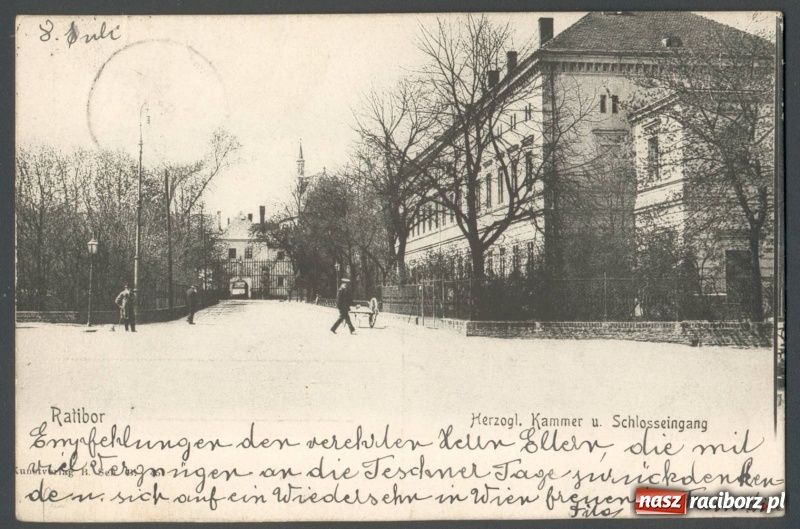 8. Juli
Ratibor
Herzogl. Kammer u. Schlosseingang
Empfehlungen den verehrten Herrn Eltern, die mit
viel Vergnügen an die Teschner Tage zurückdenken-
de u. sich auf ein Wiedersehn in Wien freuen
Kunstverlag
nasz raciborz.pl